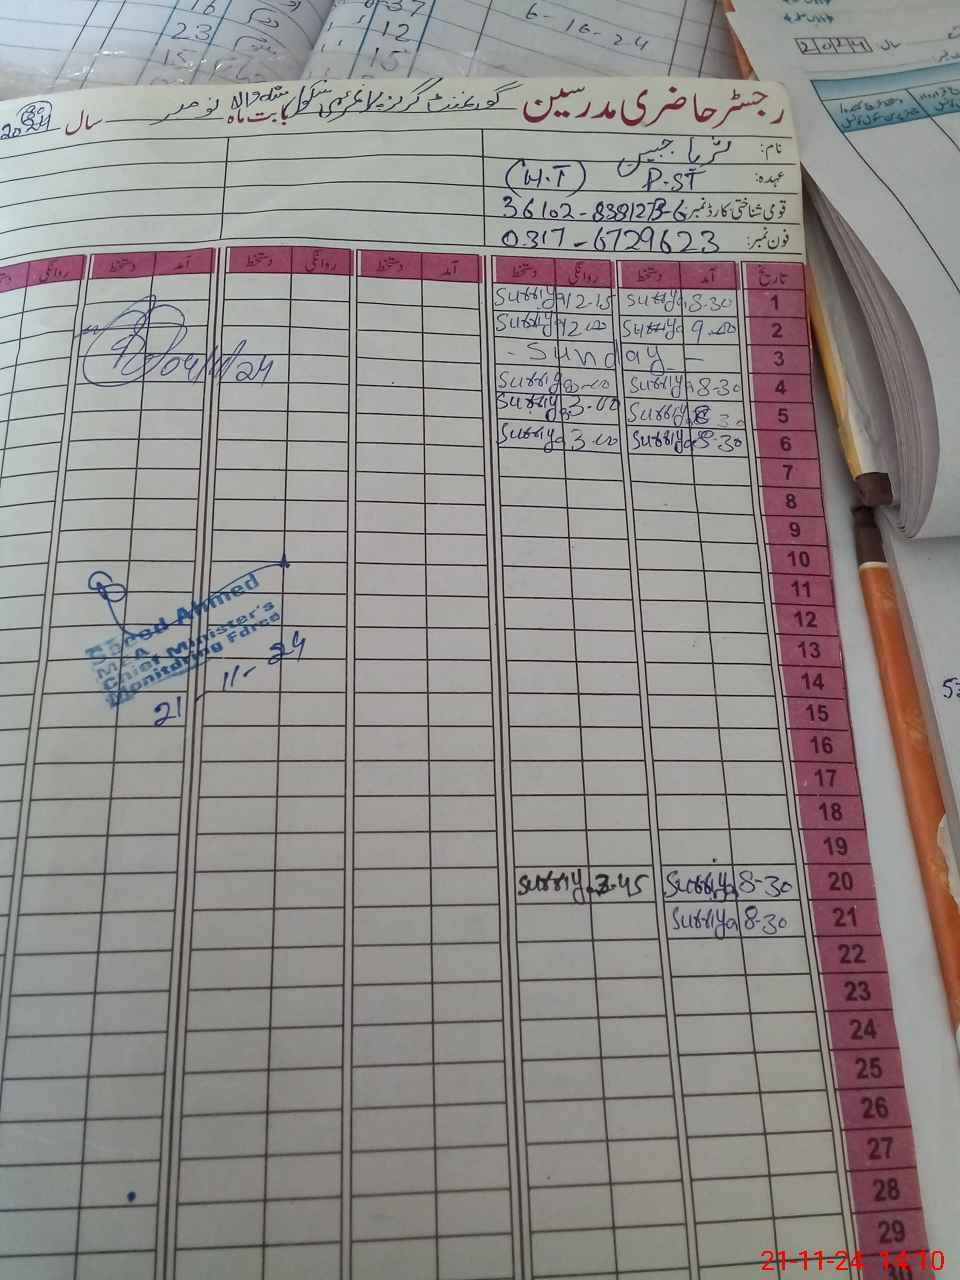 16
23
15
0-37
12
15
6-16-24
2024 سال
رجسٹر حاضری مدرسین گورنمنٹ گرلز پرائمری سکول بابت ماہ نومبر سال 2024
نام: ثریا جبیں
عہدہ: P.ST (H.T)
قومی شناختی کارڈ نمبر:
فون نمبر: 0317-6729623
تاریخ آمد دستخط روانگی دستخط آمد دستخط روانگی دستخط آمد دستخط روانگی
1 Surriya 8-30 Surriya 12-15
2 Surriya 9-00 Surriya 12-00
3 - Sunday -
4 Surriya 8-30 Surriya 3-00
5 Surriya 8-30 Surriya 3-00
6 Surriya 8-30 Surriya 3-00
04/11/24
7
8
9
10
11
12
13
14
15
16
17
18
19
Saeed Ahmed
M.E.A
Chief Minister's
Monitoring Force
21-11-24
20 Surriya 8-30 Surriya 3-45
21 Surriya 8-30
22
23
24
25
26
27
28
29
30
21-11-24 14:10